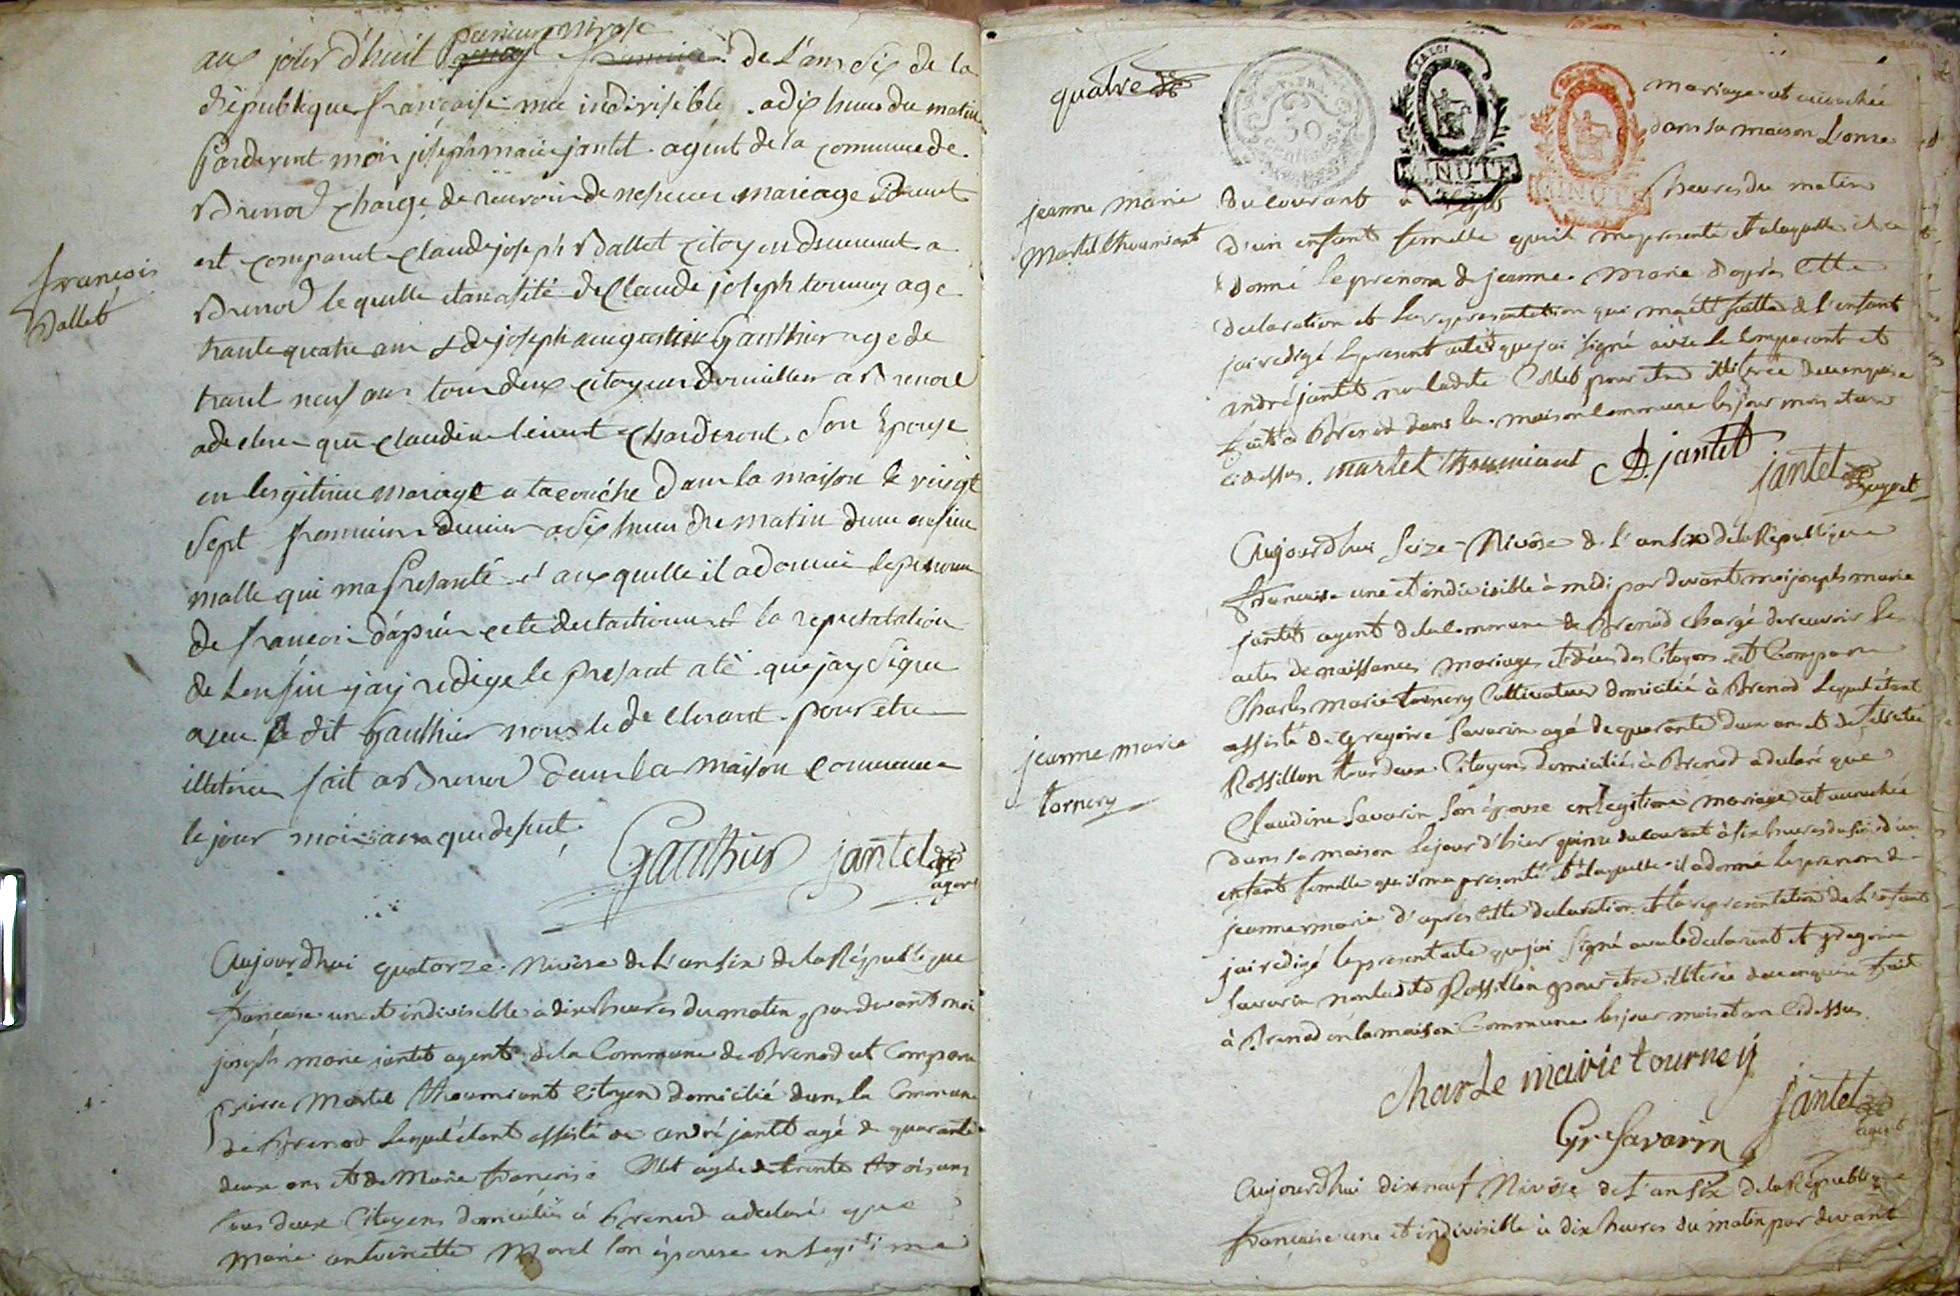 aux jour d'huit premier nivose de l'an six de la
République française une indivisible a dix heure du matin
pardevent moi joseph marie jantet agent de la commune de
Brenod chargé de recevoir de nesences mariage
est comparut claude joseph Ballet citoyen deumeut a
Brenod le quelle etan asité de Claude joseph tournery age
trante quatre ans & de joseph augustin Gauthier age de
trant neuf ans tous deux citoyens domicilier a Brenod
adeclere que claudine son Epouse
en lesgitime mariage a tacouché dans la maison le vingt
sept frimaire dernier a six heure du matin dun ensfan
malle qui ma presanté et au quelle il a donné le prenom
de francois d'apres cete declaration et la represtatation
de l'enfan j'ay redige le presant atè que jay signe
avec le dit Gauthier non le declarant pour etre
illeteré fait a Brenod dans la maison commune
le jour mois an que desut
Gauthier jantet agent
françois
Ballet
Aujourdhui quatorze Nivôse de L'an six de la République
francaise une et indivisible à dix heures du matin pardevant moi
joseph marie jantet agent de la Commune de Brenod est Comparu
pierre Martel thoumiant Citoyen domicilié dans la Commune
de Brenod Lequel étant assisté de andré jantet agé de quarante
deux ans et de Marie françoise Collet agée de trente trois ans
tous deux Citoyens domiciliés à Brenod a declaré que
Marie antoinette Morel son épouse en Legitime
quatre
30
centimes
LA LOI
MINUTE
MINUTE
mariage est accouchée
dans sa maison L'onze
du courant à heures du matin
d'un enfant femelle qu'il m'a presenté et a laquelle il a
donné le prenom de jeanne Marie d'après cette
declaration et la representation qui m'a été faitte de l'enfant
jai redigé le present acte que jai signé avec le comparant et
andré jantet non ladite Collet pour etre illiterée de ce enquise
fait à Brenod dans la maison Commune les jour mois et an
cidessus. martel thoumiant A. jantet
jantet agent
jeanne marie
Martel thoumiant
Aujourdhui seize Nivôse de l'an six de la République
francaise une et indivisible à midi pardevant moi joseph marie
jantet agent de la Commune de Brenod chargé de recevoir les
actes de naissances mariages et décès des Citoyens est Comparu
Charles Marie tornery Cultivateur domicilié à Brenod Lequel étant
assisté de gregoire Savarin agé de quarante deux ans et de
Rossillon tous deux Citoyens domiciliés à Brenod a declaré que
Claudine Savarin son épouse en Legitime mariage est accouchée
dans sa maison le jour d'hier quinze du courant à six heures du soir d'un
enfant femelle qu'il m'a presenté et a laquelle il a donné le prenom de
jeanne marie d'après cette declaration et la representation de L'enfant
jai redigé le present acte que jai signé avec le declarant et gregoire
Savarin non ledit Rossillon pour etre illiteré de ce enquis fait
à Brenod en la maison Commune les jour mois et an Cidessus.
Charle marie tourney
Gr Savarin jantet agent
jeanne marie
tornery
Aujourdhui dix neuf Nivôse de L'an six de la République
française une et indivisible à dix heures du matin par devant